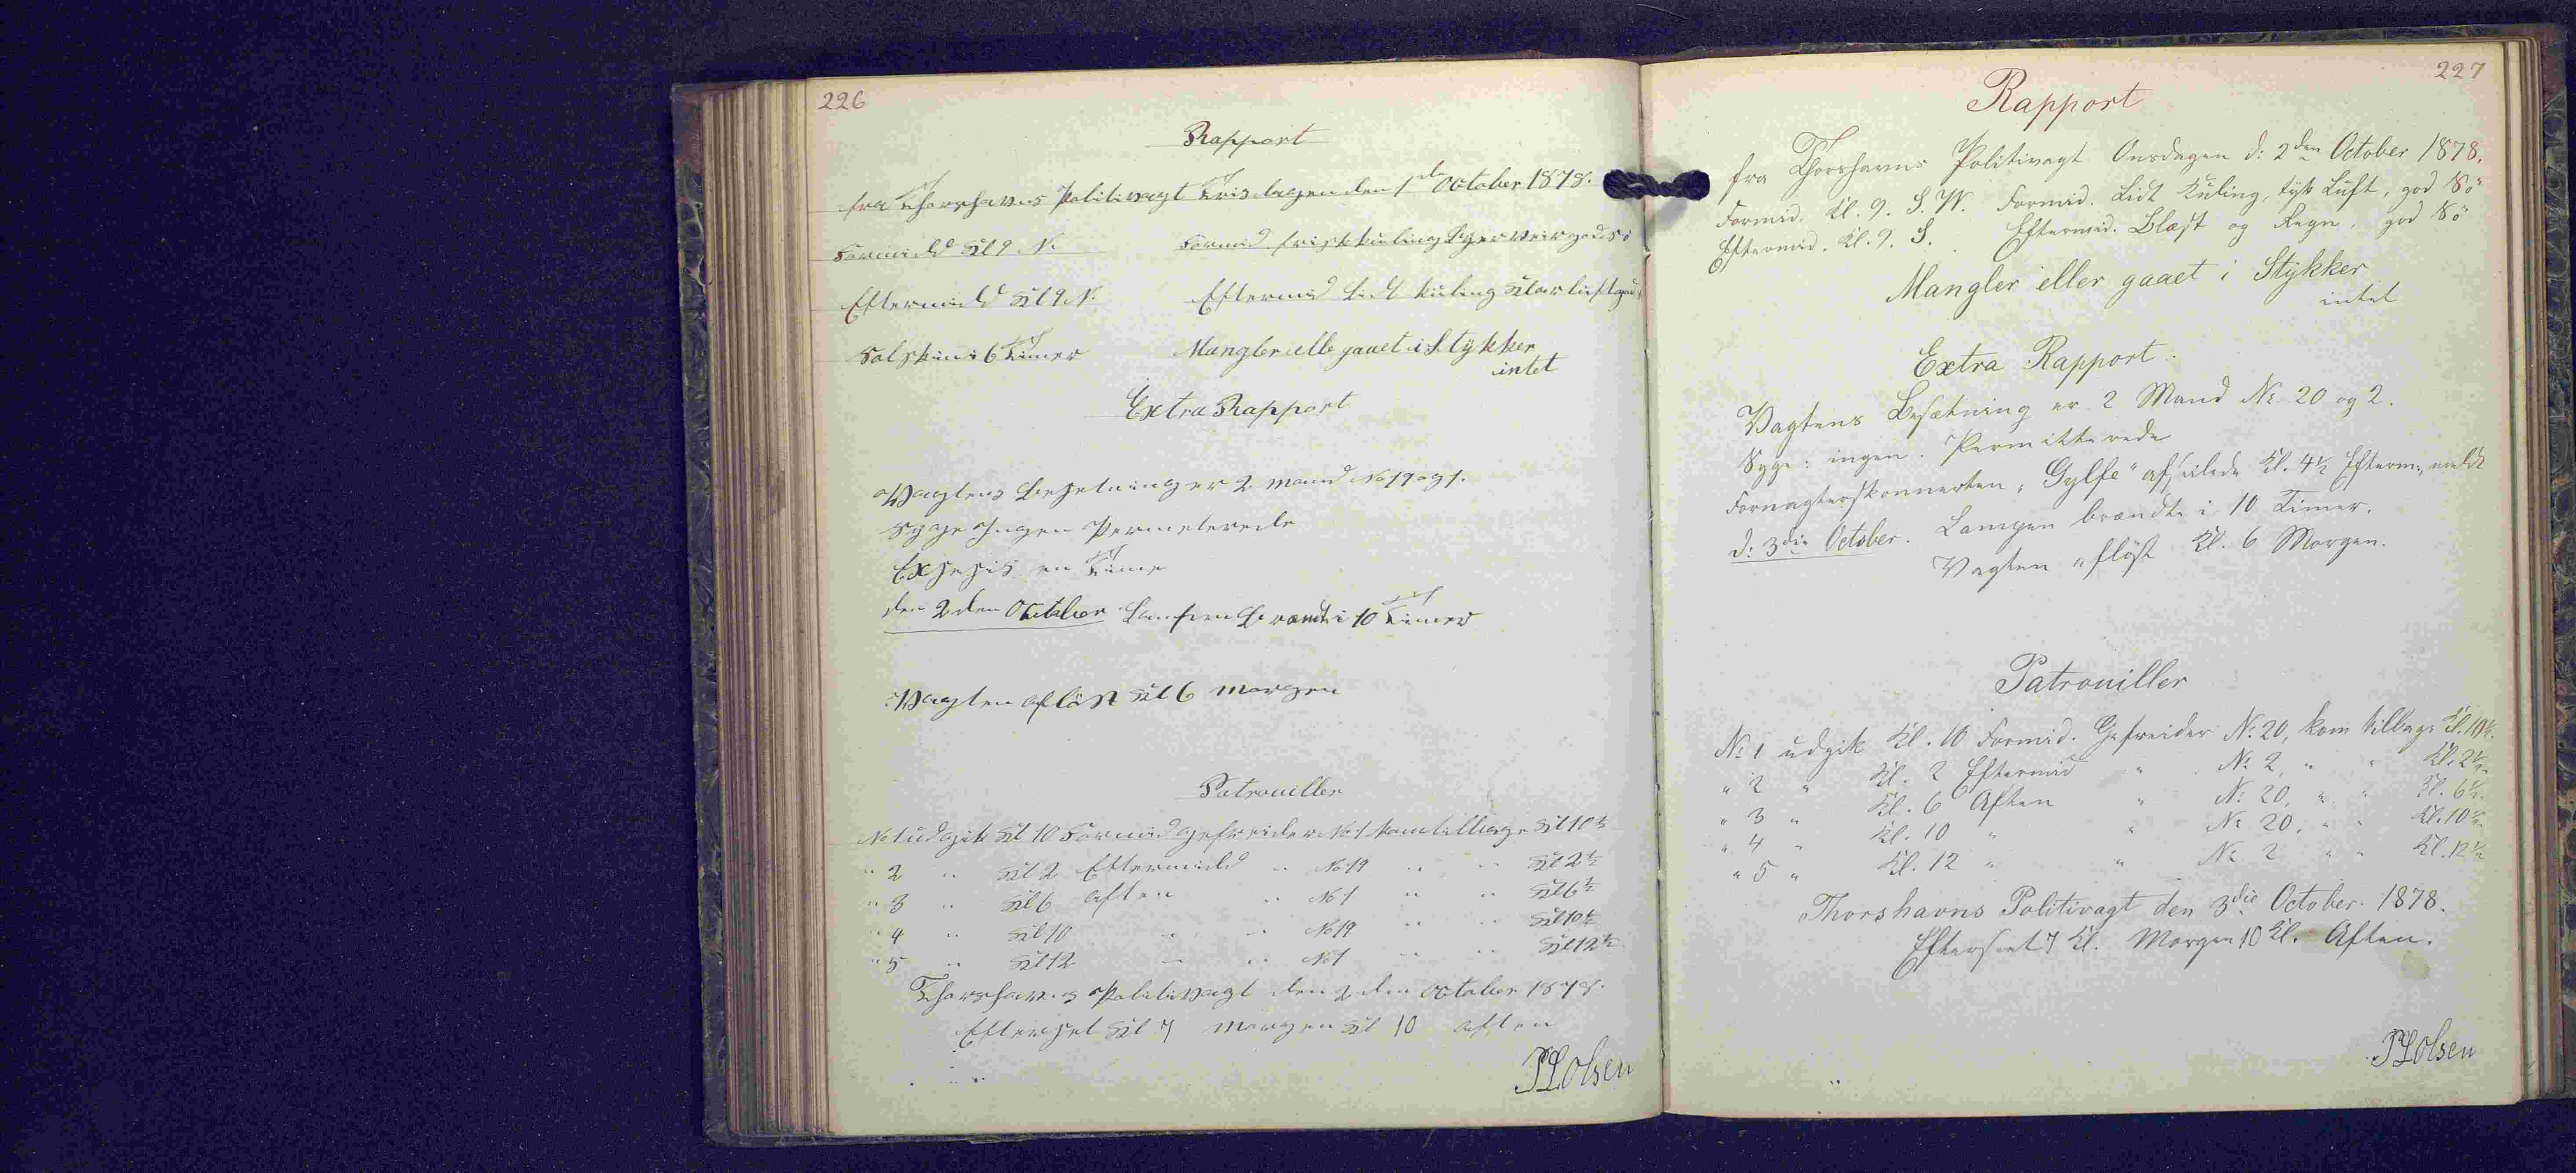 226
Rapport
fra Thorshavns Politivagt Tirsdagen den 1ste October 1878.
Formidd Kl 9 N. Formid frisk kuling Byer veir god Sö
Eftermidd Kl 9 N. Eftermid Lidt kuling Klar luft god
Solskin i 6 Timer Mangler elle gaaet i Stykker
intet
Extra Rapport
Vagtens Besetning er 2 mand No 19 og 1.
Syge Ingen Permeterede
Exsesis en Time
den 2den October Lampen Brændt i 10 Timer
Vagten aflöst Kl 6 morgen
Patrouiller
No 1 udgik Kl 10 Formid gefreider No 1 kom tilbage Kl 10½
" 2 " Kl 2 Eftermidd " No 19 " " Kl 2½
" 3 " Kl 6 Aften " No 1 " " Kl 6½
" 4 " Kl 10 " " No 19 " " Kl 10½
" 5 " Kl 12 " " No 1 " " Kl 12½
Thorshavns Politivagt den 2den October 1878.
Efterset Kl 7 morgen Kl 10 aften
PLOlsen
227
Rapport
fra Thorshavns Politivagt Onsdagen d: 2den October 1878.
Formid. Kl. 9. S.W. Formid. Lidt Kuling, tyk Luft, god Sö
Eftermid. Kl. 9. S. Eftermid. Blæst og Regn, god Sö
Mangler eller gaaet i Stykker
intet
Extra Rapport.
Vagtens Besætning er 2 Mand No 20 og 2.
Syge: ingen. Permitterede
Fornagterskonnerten "Gylfe" afseilede Kl. 4½ Efterm:
d: 3die October. Lampen brændte i 10 Timer.
Vagten aflöst Kl. 6 Morgen.
Patrouiller
No 1 udgik Kl. 10 Formid. Gefreider No. 20, kom tilbage Kl. 10½.
" 2 " Kl. 2 Eftermid " No 2, " " Kl. 2½
" 3 " Kl. 6 Aften " No 20, " " Kl. 6½.
" 4 " Kl. 10 " " No 20, " " Kl. 10½
" 5 " Kl. 12 " " No 2 " " Kl. 12½
Thorshavns Politivagt den 3die October 1878.
Efterseet 7 Kl. Morgen 10 Kl. Aften.
PLOlsen